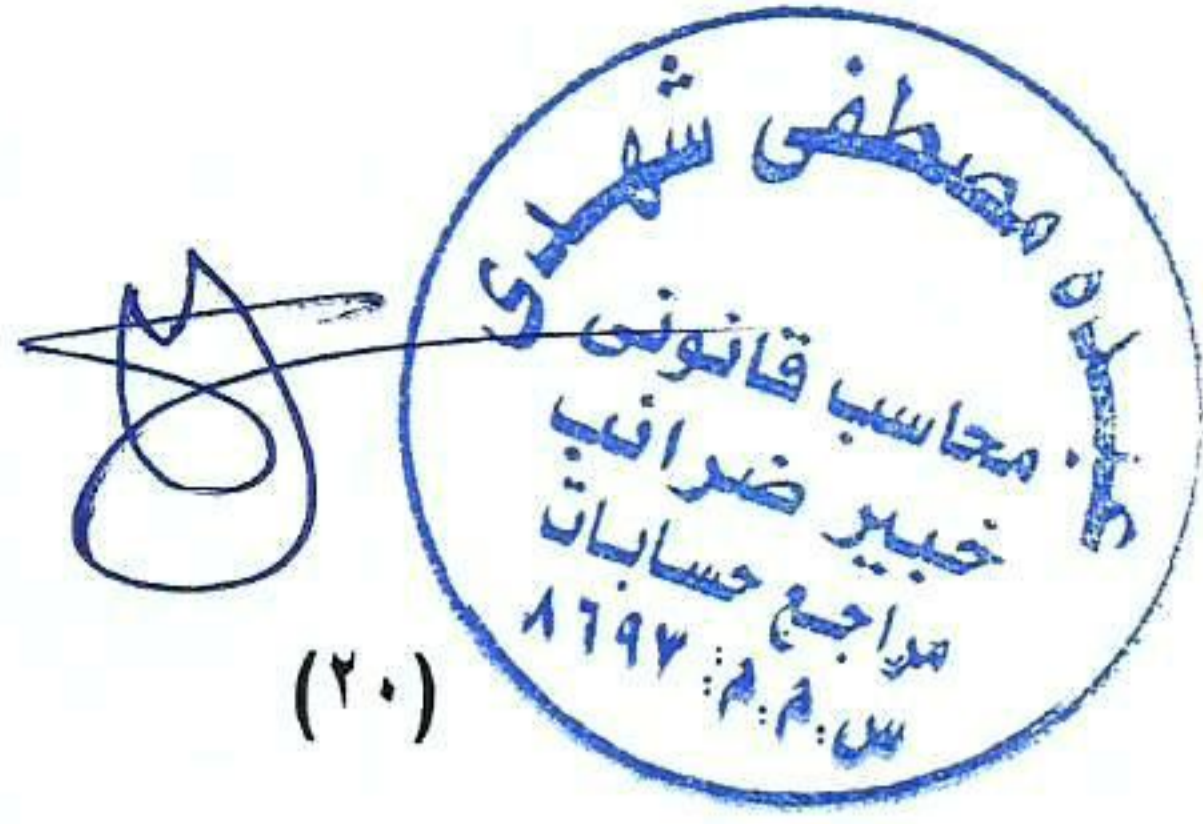 عبده مصطفى شهدى
محاسب قانونى
خبير ضرائب
مراجع حسابات
س.م.م: ٨٦٩٧
(٢٠)